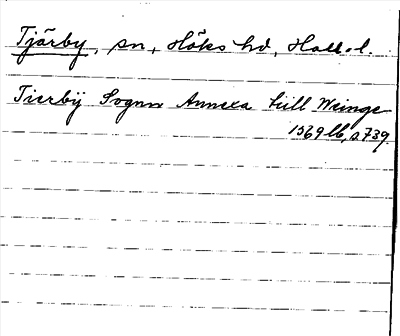 Tjärby, sn, Höks hd, Hall. l.
Tierbÿ Sognn Annexa till Weinge
1569 lb, s. 739.